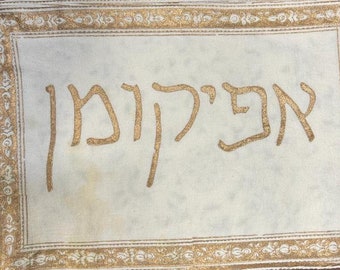 אפיקומן